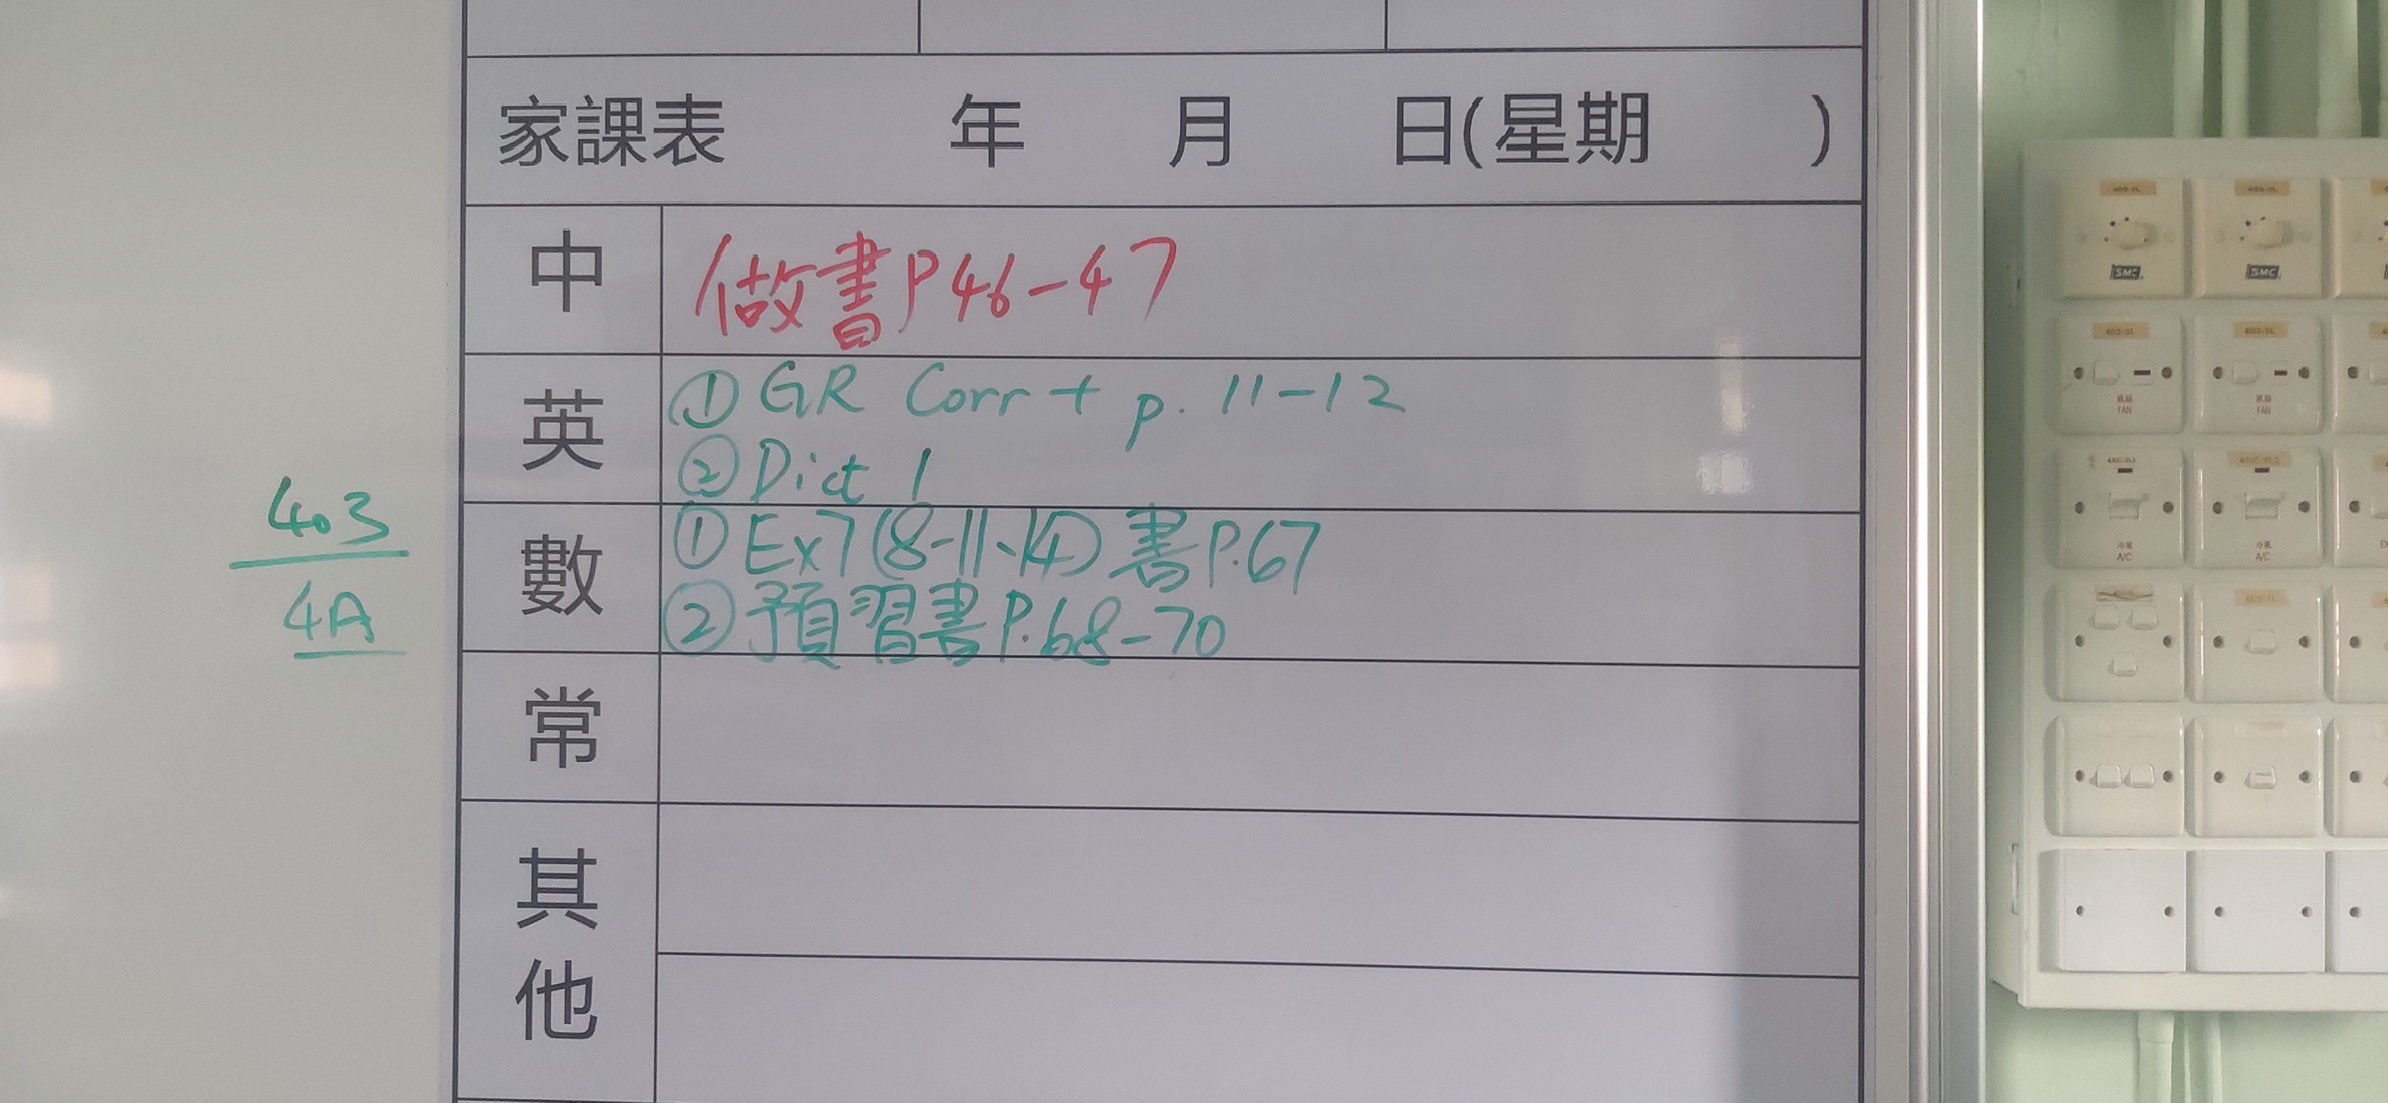 家課表 年 月 日(星期 )
中 做書P46-47
英 ① GR Corr + p. 11-12
② Dict 1
數 ① Ex7 (8-11、14) 書P.67
② 預習書P.68-70
常
其他
403
4A
SMC
SMC
風扇
FAN
風扇
FAN
冷氣
A/C
冷氣
A/C